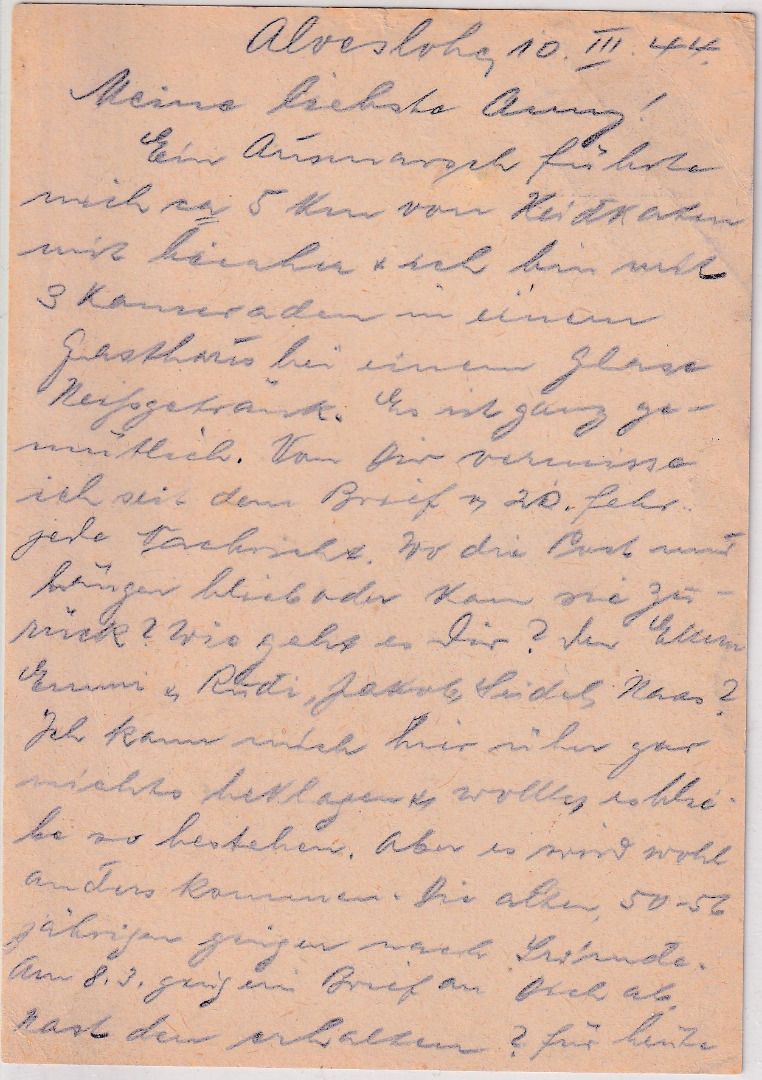 Alveslohe, 10. III. 44.
Meine liebste Anny!
Ein Ausmarsch führte
mich ca 5 Km von Heidkaten
mit hierher & ich bin mit
3 Kameraden in einem
Gasthaus bei einem Glase
Heißgetränk. Es ist ganz ge-
mütlich. Von Dir vermisse
ich seit dem Brief v. 20. Febr.
jede Nachricht. Wo die Post nur
hängen blieb oder kam sie zu-
rück? Wie geht es Dir? den Eltern
Emmi & Rudi, Jakob, Seidel, Naas?
Ich kann mich hier über gar
nichts beklagen & wollte, es blie-
be so bestehen. Aber es wird wohl
anders kommen. Die alten, 50-56
jährigen gingen nach
Am 8.3. ging ein Brief an Dich ab.
Hast den erhalten? Für heute